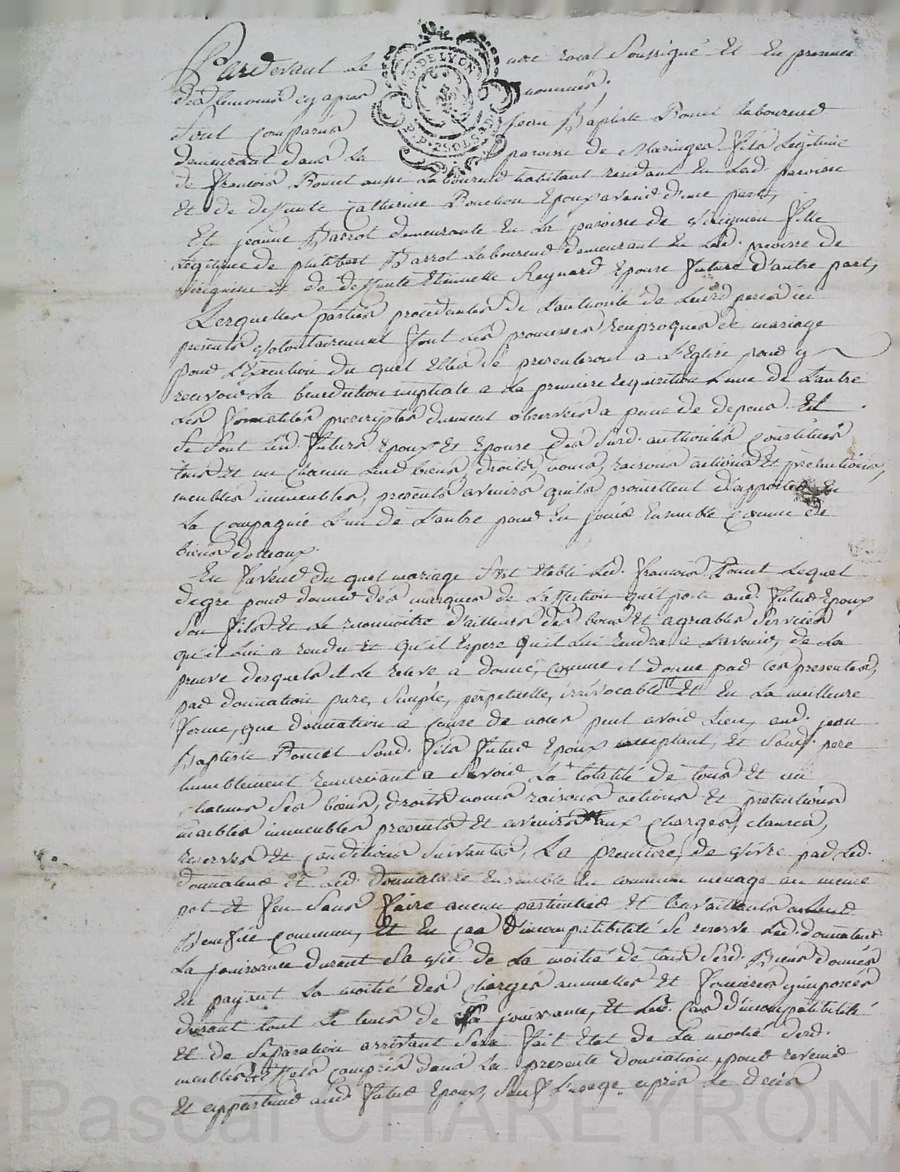 Pardevant Le notaire royal soussigné Et En presence
des temoins cy apres nommés.
G. DE LYON
P. P. 2 SOLS 8 D.
Sont comparus Jean Baptiste Poncet laboureur
demeurant dans La paroisse de Maringes fils Legitime
de françois Poncet aussi Laboureur habitant residant En Lad. paroisse
Et de deffunte Catherine Ponchon Epoux avenir d'une part,
Et jeanne Barrot demeurante En La paroisse de Virigneu fille
Legitime de philibert Barrot Laboureur demeurant En Lad. paroisse de
virigneu & de deffunte Etiennette Reynard Epouse future d'autre part,
Lesquelles parties procedantes de L'authorité de Leursd. peres ici
presents volontairement font Les promesses reciproques de mariage
pour L'Execution du quel Elles se presenteront a L'Eglise pour y
recevoir La benediction nuptiale a La premiere requisition L'une de L'autre
Les formalités prescriptes duement observées a peine de depens Et
se sont Lesd. futurs Epoux Et Epouse des susd. authorités constitués
tous Et un chacun Leurs biens, droits, noms, raisons actions Et pretentions,
meubles immeubles, presents avenirs qu'ils promettent d'apporter En
La Compagnie L'un de L'autre pour En jouir Ensemble Comme de
biens dotaux.
En faveur du quel mariage s'est Etabli Led. françois Poncet Lequel
de gré pour donner des marques de L'affection qu'il porte aud. futur Epoux
son fils Et Le reconnoitre d'ailleurs des bons Et agreables services
qu'il lui a rendu Et qu'il Espere qu'il lui rendra a L'avenir, de La
preuve desquels il Le releve a donné, comme il donne par ces presentes,
par donnation pure, simple, perpetuelle, irrévocable Et En La meilleure
forme, que donnation a Cause de noces peut avoir Lieu, aud. jean
Baptiste Poncet sond. fils futur Epoux acceptant, Et sond. pere
humblement remerciant a sçavoir La totalité de tous Et un
chacuns ses biens, droits noms raisons actions Et pretentions
meubles immeubles presents Et avenirs aux charges, clauses,
reserves Et conditions suivantes, La premiere, de vivre par Led.
donnateur Et Led. donnataire Ensemble En commun menage au meme
pot Et feu sans faire aucun particulier Et travaillants au
benefice commun, Et En cas d'incompatibilité se reserve Led. donnateur
La jouissance durant sa vie de La moitié de tous sesd. Biens donnés
En payant La moitié des charges annuelles Et foncieres y imposées
durant tout Le tems de sa jouissance, Et Led. Cas d'incompatibilité
Et de separation arrivant sera fait Etat de La moitié desd.
meubles Et Effets compris dans La presente donnation pour revenir
Et appartenir aud. futur Epoux, sauf L'usage après Le deces
Pascal CHAREYRON